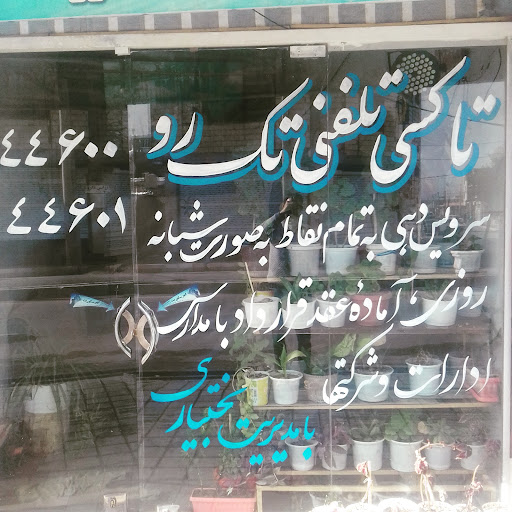 تاکسی تلفنی تک رو
۴۴۶۰۰
۴۴۶۰۱
سرویس دهی به تمام نقاط به صورت شبانه
روزی، آمادهٔ عقد قرارداد با مدارس
ادارات و شرکتها
با مدیریت بختیاری